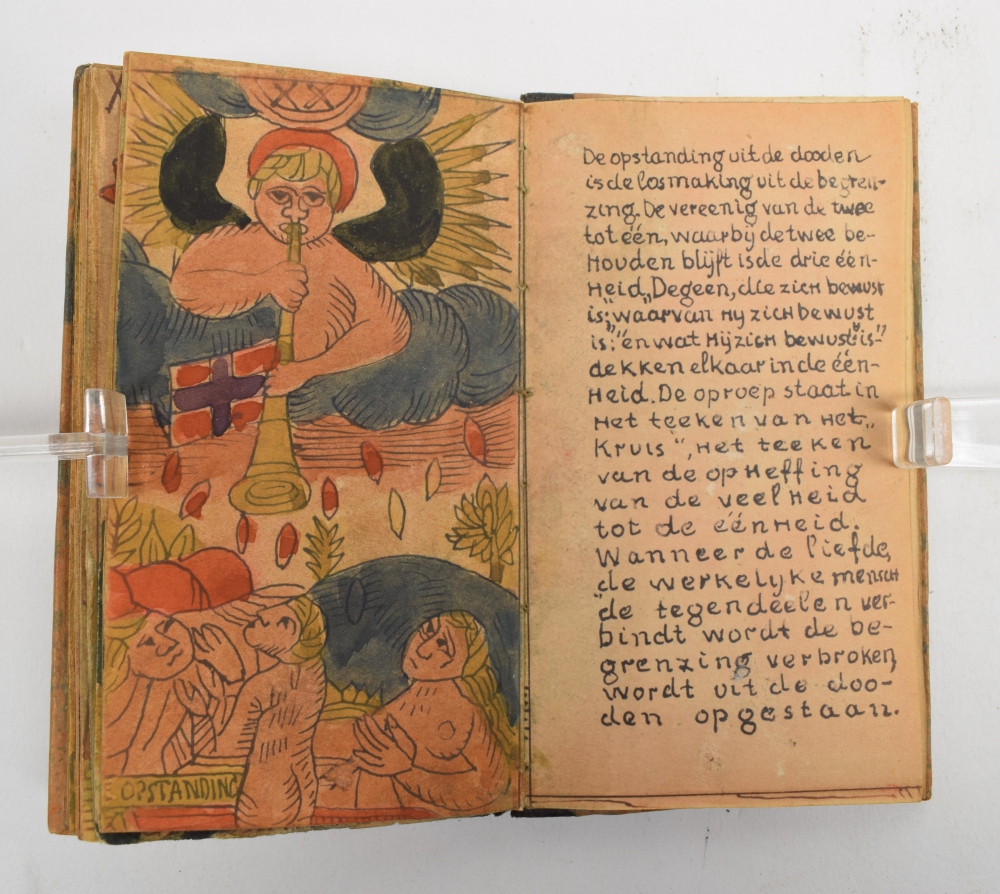 E OPSTANDING
De opstanding uit de dooden
is de losmaking uit de begren-
zing. De vereenig van de twee
tot één, waarbij de twee be-
Houden blijft is de drie één-
Heid. „Degeen, die zich bewust
is”, „waarvan Hij zich bewust
is”, „én wat Hij zich bewust is”
dekken elkaar in de één-
Heid. De oproep staat in
Het teeken van Het „
Kruis”, Het teeken
van de opHeffing
van de veelHeid
tot de éénHeid.
Wanneer de liefde,
de werkelijke mensch
de tegendeelen ver-
bindt wordt de be-
grenzing verbroken,
wordt uit de doo-
den opgestaan.